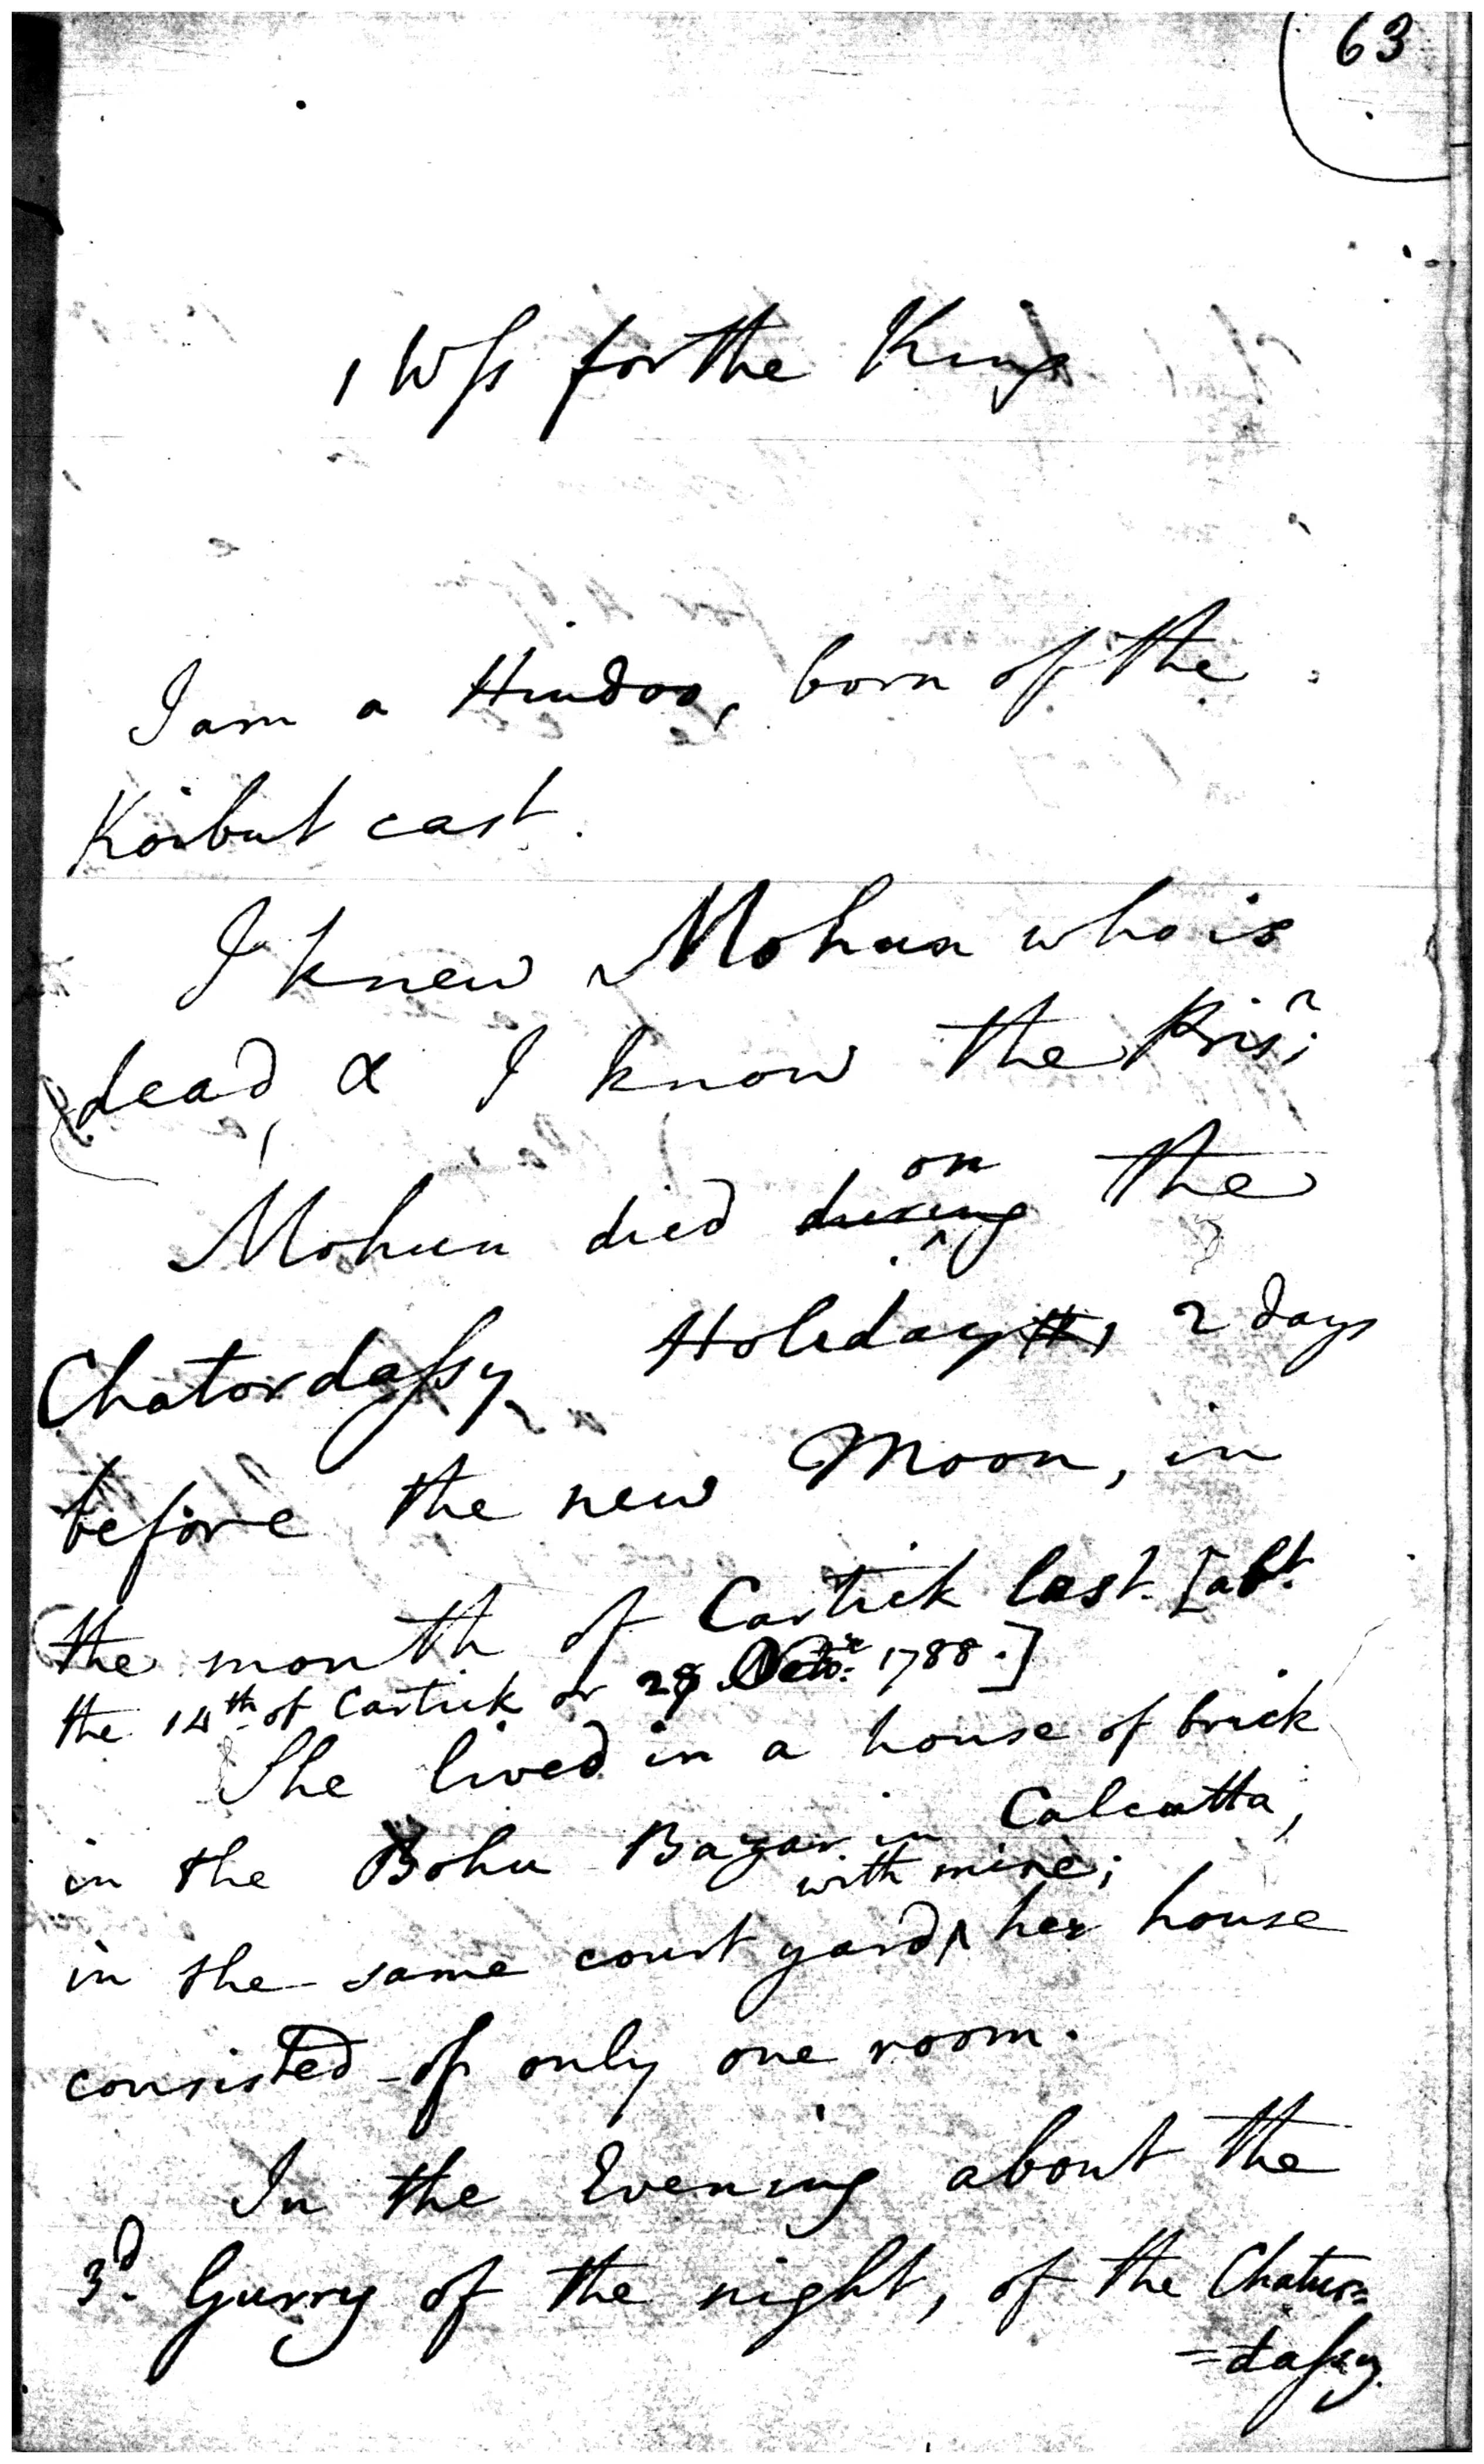 63
1 Wss for the King
I am a Hindoo, born of the
Koibut cast.
I knew Mohun who is
dead, & I know the Prisr;
on
Mohun died during the
Chatordassy Holiday, 2 days
before the new Moon, in
the month of Cartick last. [abt.
the 14th of Cartick or 1788.]
She lived in a house of brick
in the Bohu Bazar in Calcutta,
with mine;
in the same court yard ^ her house
consisted of only one room.
In the Evening about the
3d. Gurry of the night, of the Chatur=
=dassy.